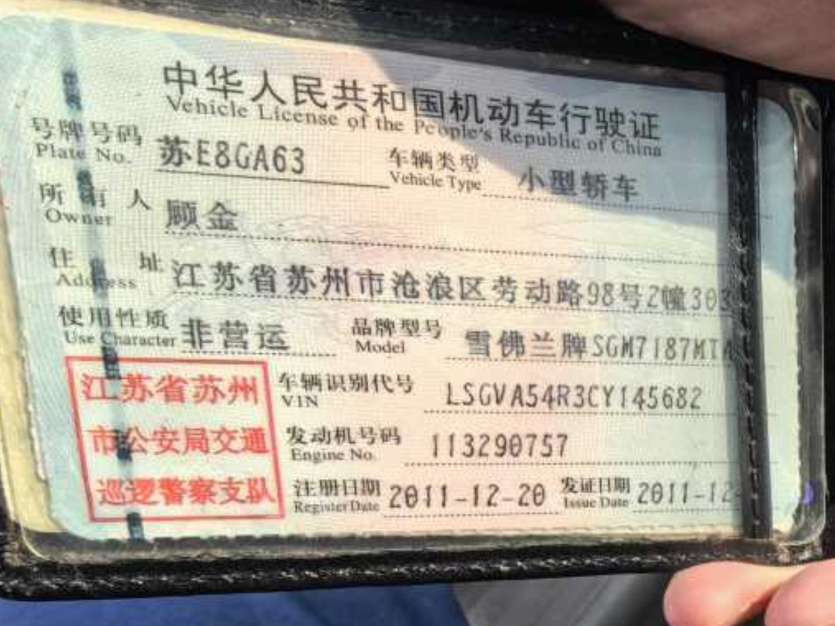 中华人民共和国机动车行驶证
Vehicle License of the People's Republic of China
号牌号码 苏E8GA63 车辆类型 小型轿车
Plate No. Vehicle Type
所有人 顾金
Owner
住址 江苏省苏州市沧浪区劳动路98号2幢303
Address
使用性质 非营运 品牌型号 雪佛兰牌SGM7187MTA
Use Character Model
江苏省苏州 车辆识别代号 LSGVA54R3CY145682
VIN
市公安局交通 发动机号码 113290757
Engine No.
巡逻警察支队 注册日期 2011-12-20 发证日期 2011-12-
Register Date Issue Date